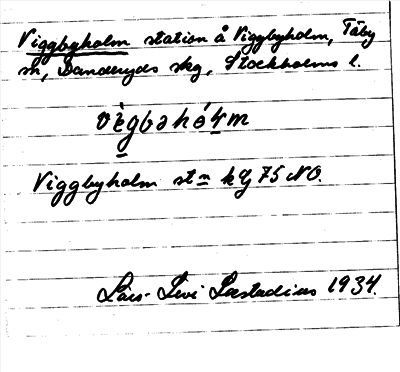 Viggbyholm station å Viggbyholm, Täby
sn, Danderyds skg, Stockholms l.
vègbəhó4m
Viggbyholm stn k 4j 75 NO.
Lars-Levi Læstadius 1934.